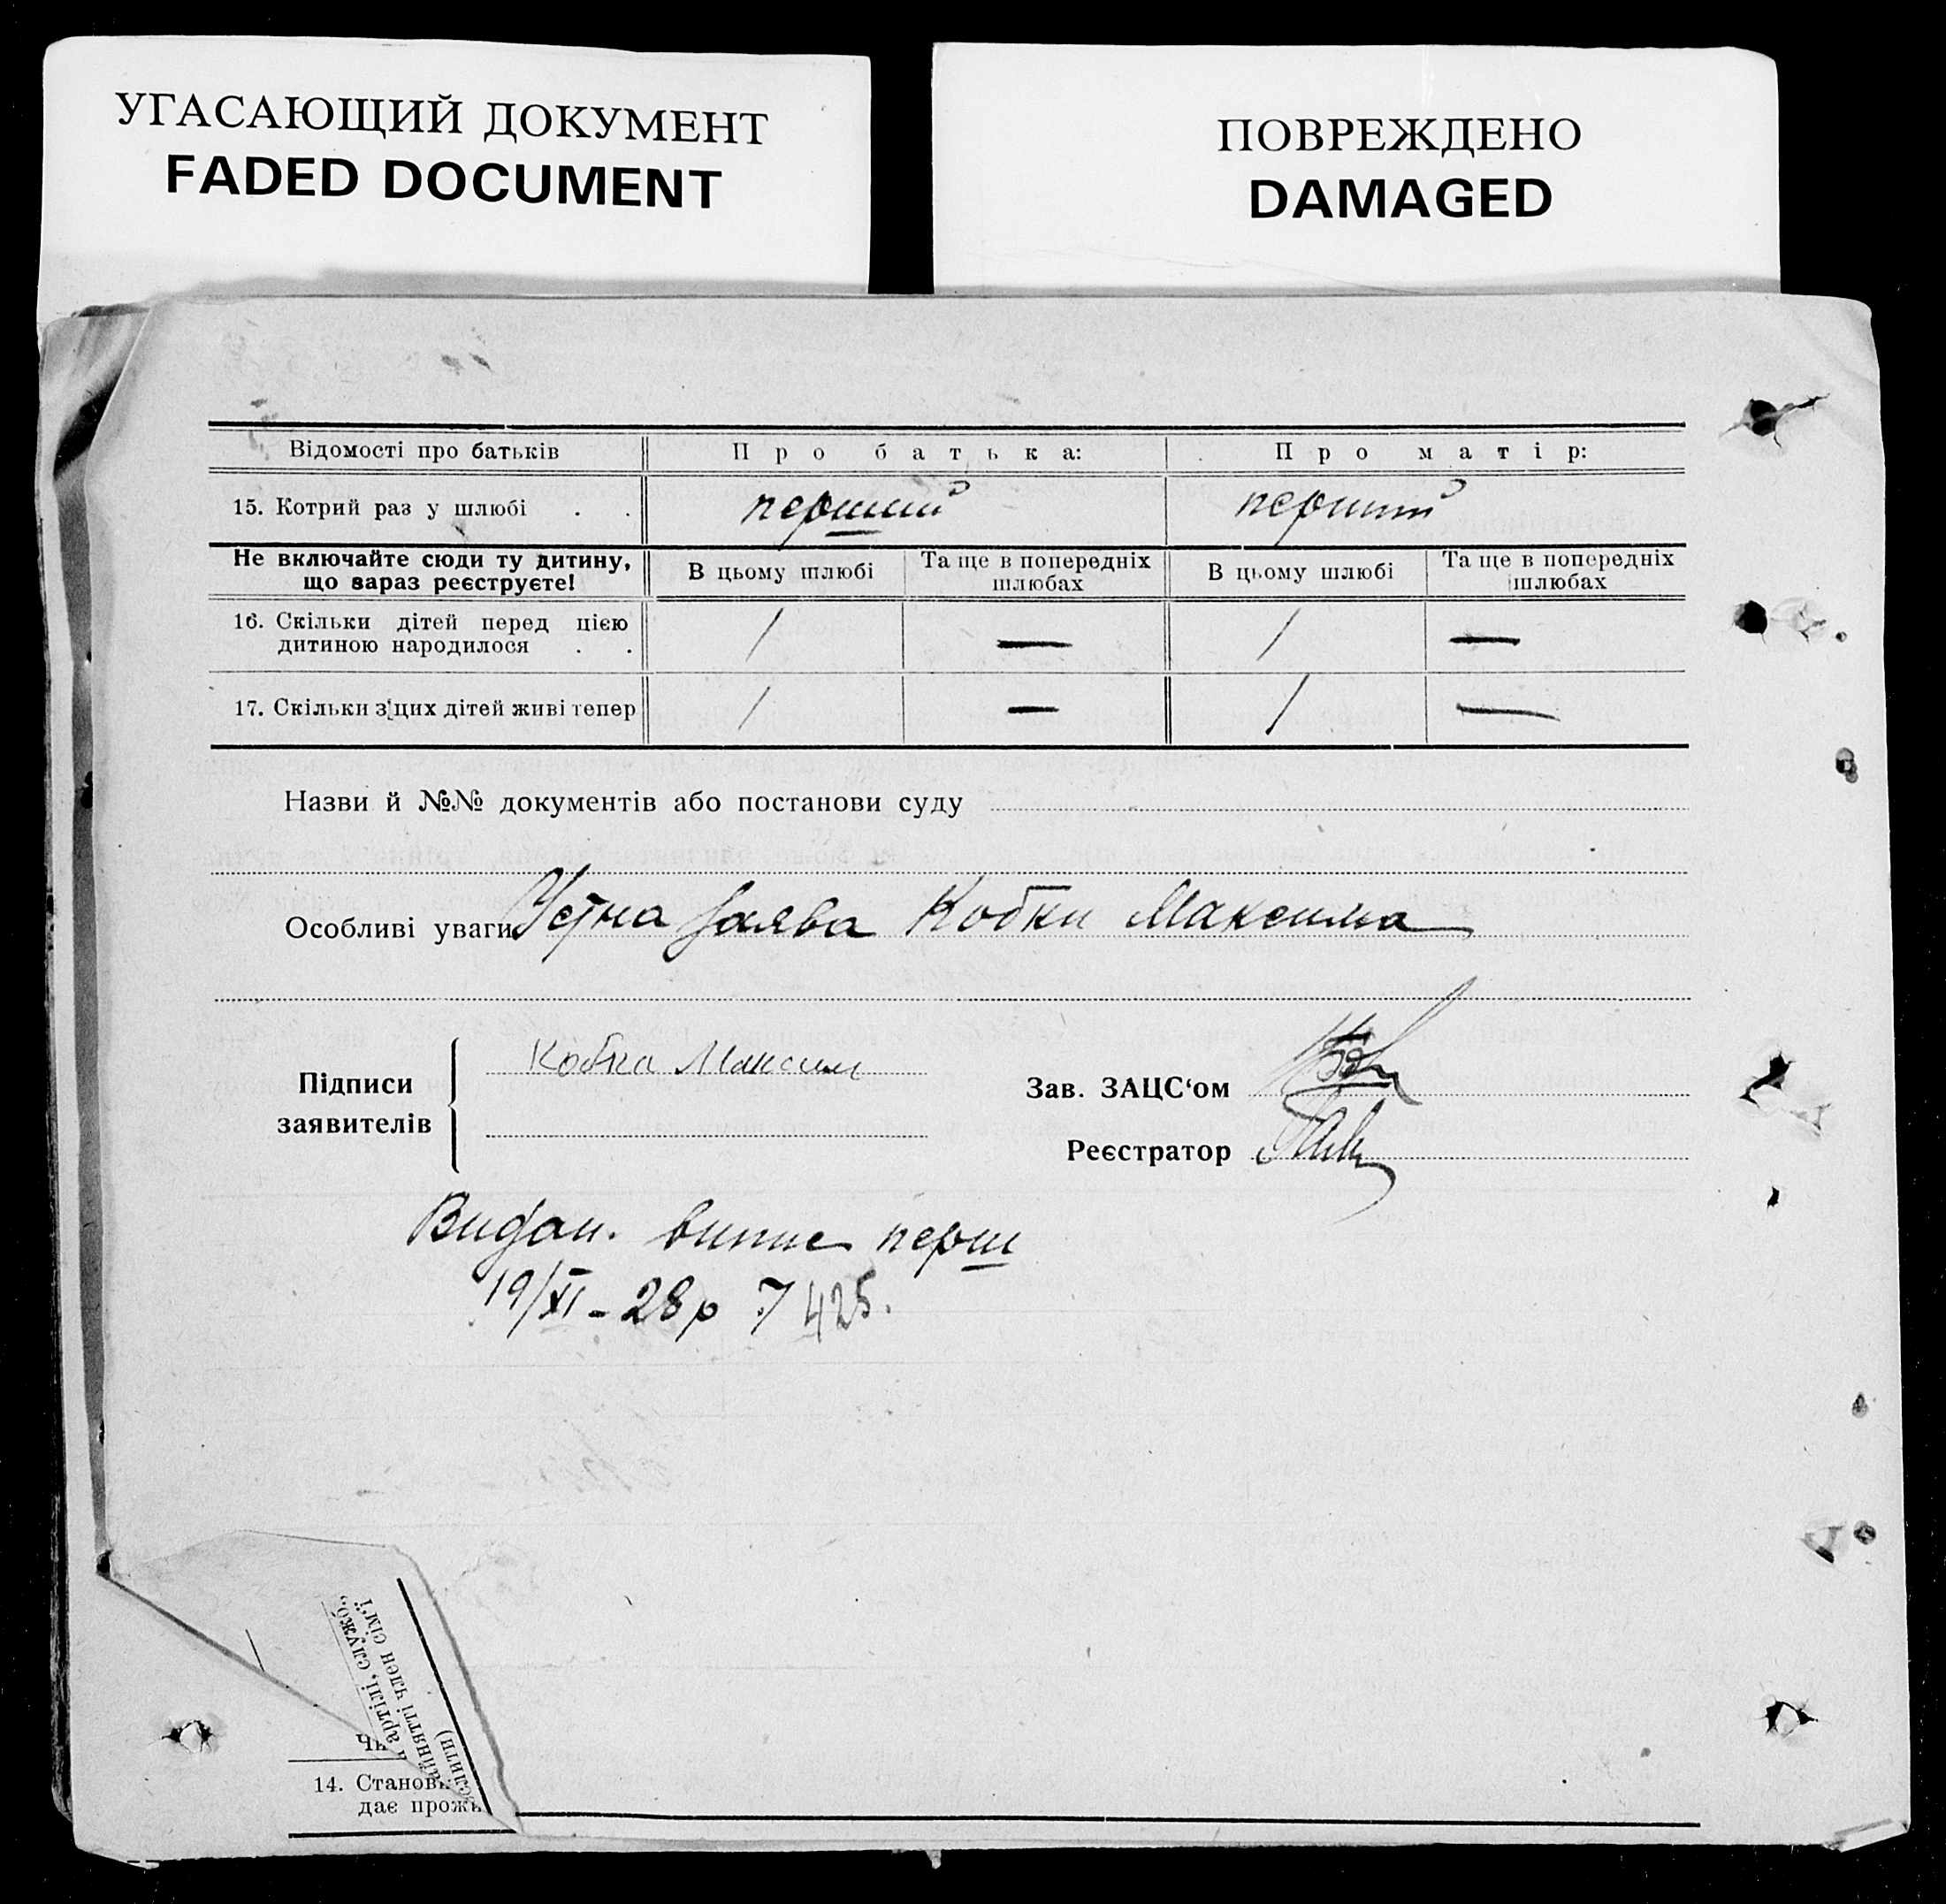 УГАСАЮЩИЙ ДОКУМЕНТ
FADED DOCUMENT
ПОВРЕЖДЕНО
DAMAGED
Відомості про батьків Про батька: Про матір:
15. Котрий раз у шлюбі . . перший перший
Не включайте сюди ту дитину, що вараз реєструєте! В цьому шлюбі Та ще в попередніх шлюбах В цьому шлюбі Та ще в попередніх шлюбах
16. Скільки дітей перед цією дитиною народилося . . 1 — 1 —
17. Скільки з цих дітей живі тепер 1 — 1 —
Назви й №№ документів або постанови суду
Особливі уваги Устна заява Кобки Максима
Підписи заявителів
Кобка Максим
Зав. ЗАЦС‘ом
Реєстратор
Видан. випис перш
19/XI - 28 р 7 425.
артілі, служб.,
член сім'ї
14. Станови
дає прожи